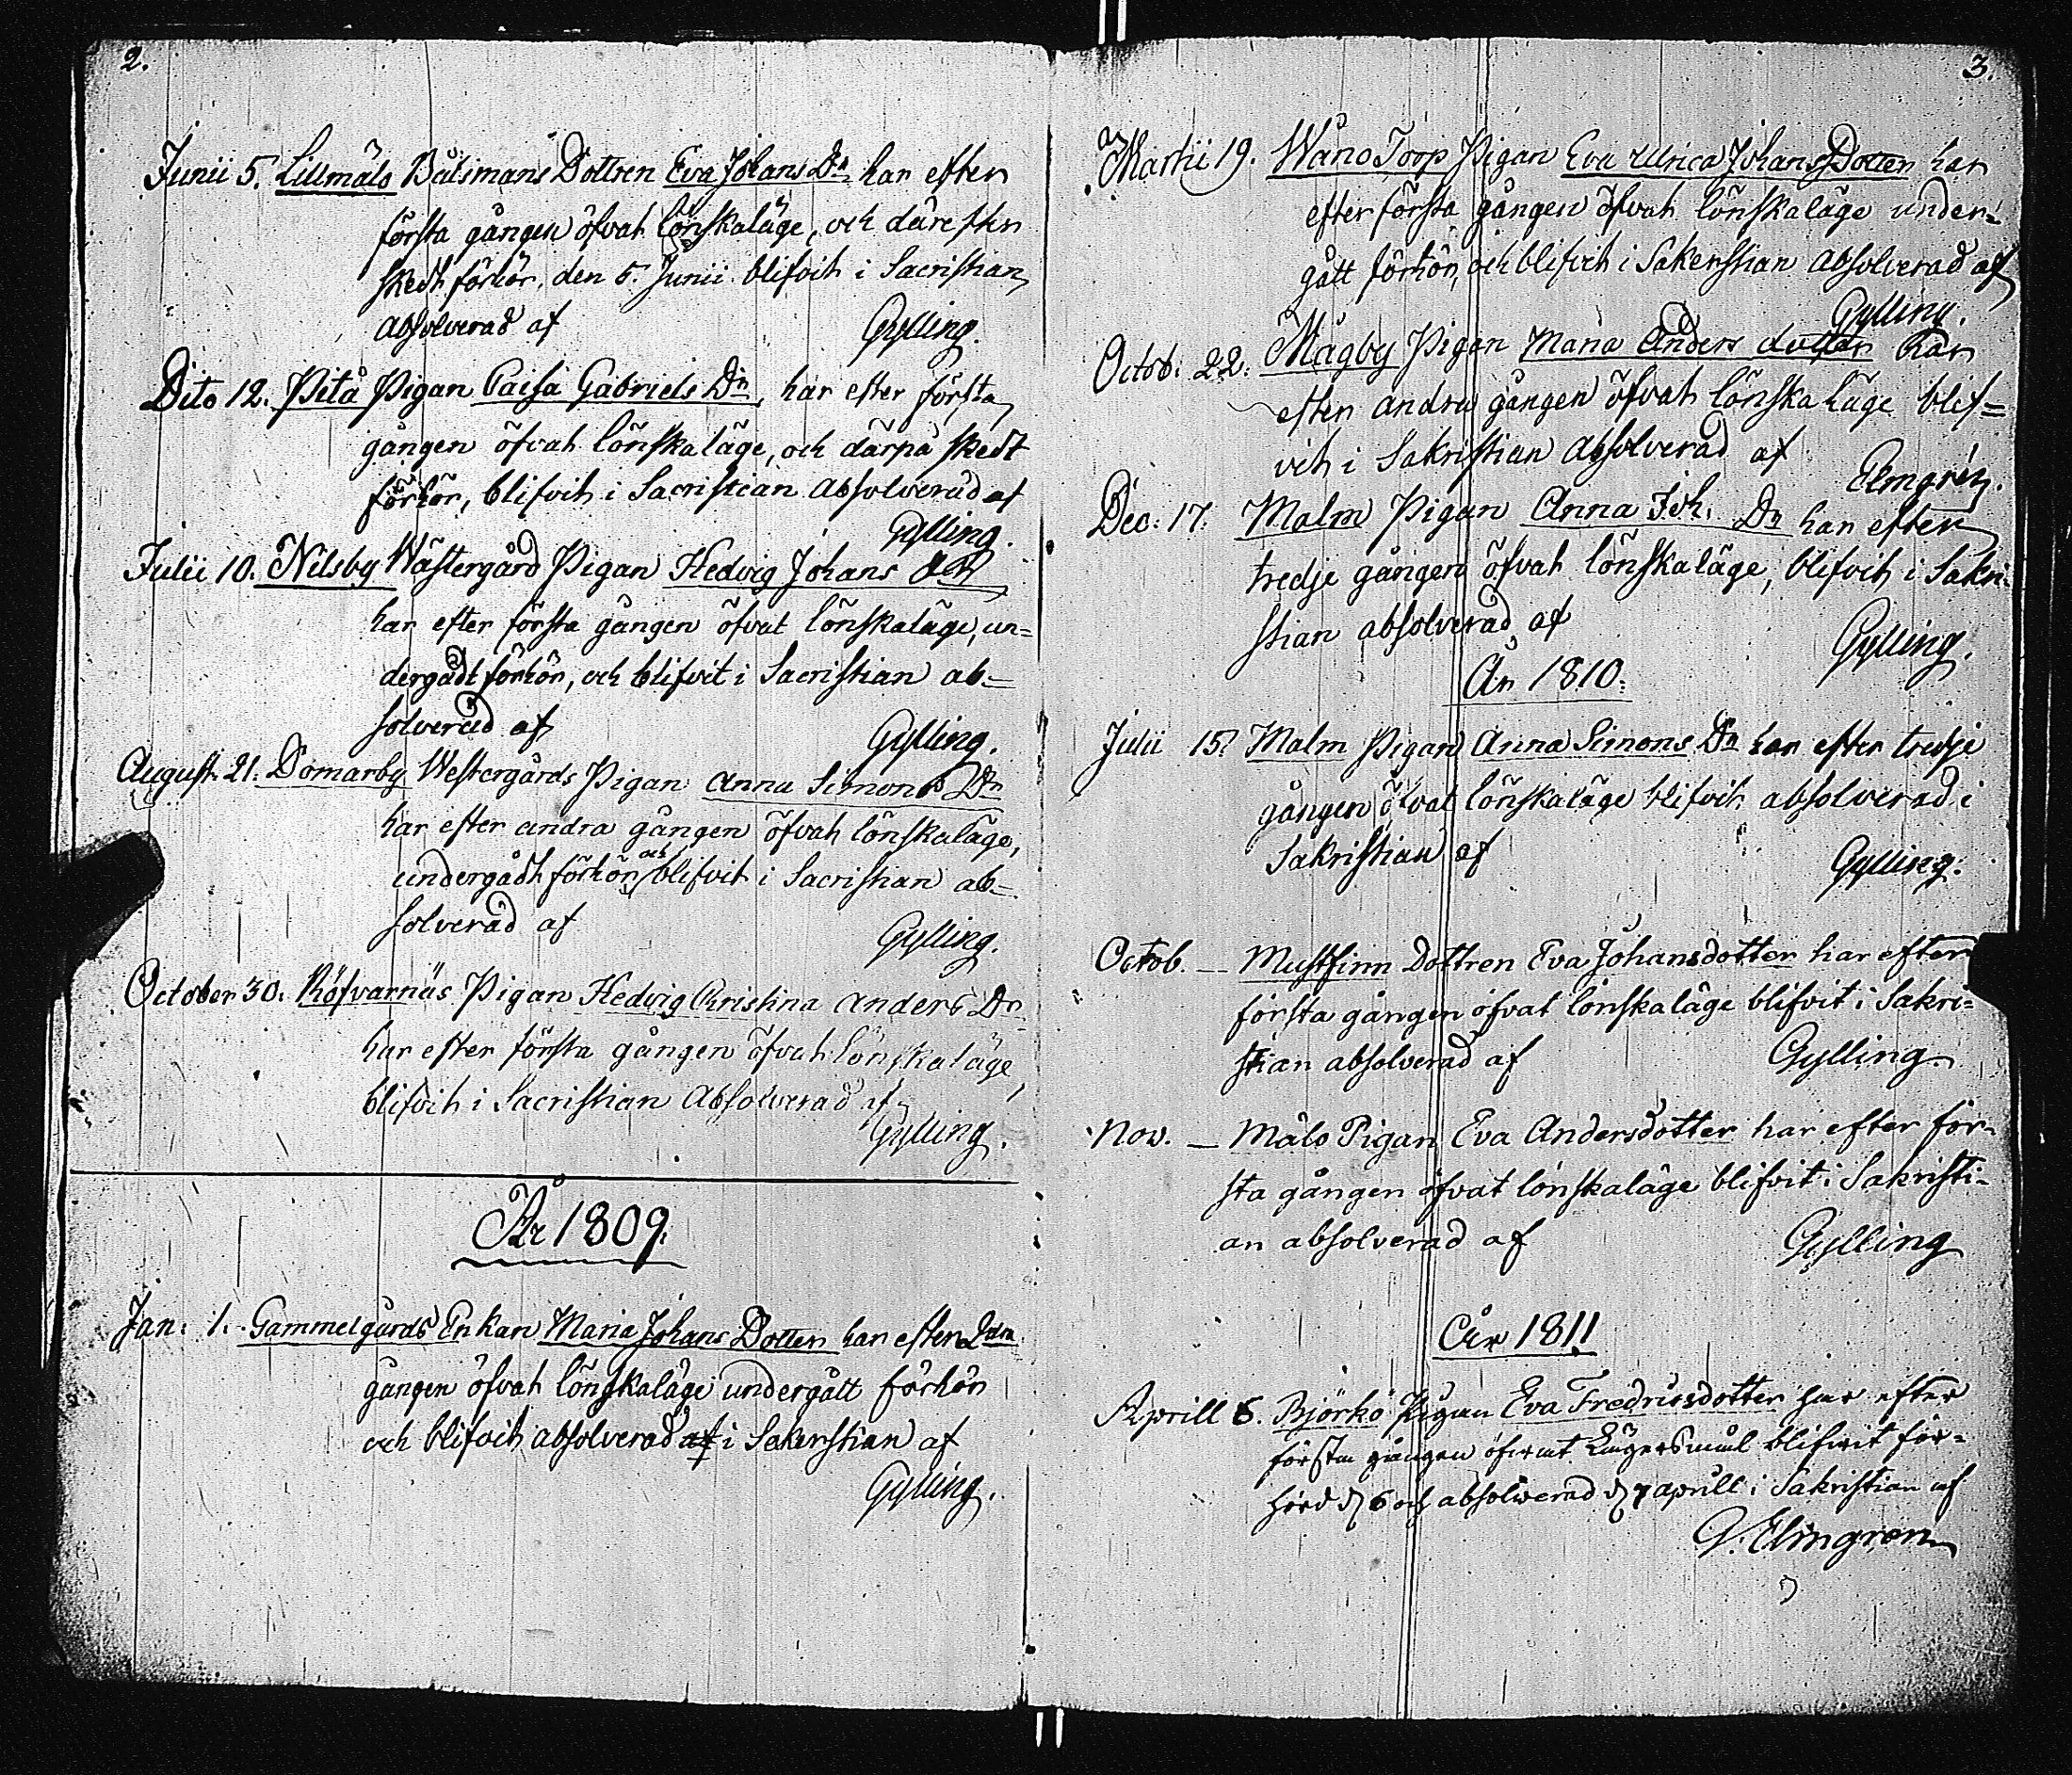 2.
Junii 5. Lillmälö Båtsmans Dottren Eva Johans Dr har efter
första gången öfvat lönskaläge, och därefter
skedt förhör, den 5. Junii blifvit i Sacristian
absolverad af Gylling.
Dito 12. Pitå Pigan Caisa Gabriels Dr har efter första
gången öfvat lönskaläge, och därpå skedt
förhör, blifvit i Sacristian absolverad af
Gylling.
Julii 10. Nilsby Wästergård Pigan Hedvig Johans Dr
har efter första gången öfvat lönskaläge, un=
dergådt förhör, och blifvit i Sacristian ab=
solverad af Gylling.
August. 21. Domarby Westergårds Pigan Anna Simons Dr
har efter andra gången öfvat lönskaläge,
undergådt förhör och blifvit i Sacristian ab=
solverad af Gylling.
October 30. Röfvarnäs Pigan Hedvig Christina Anders Dr
har efter första gången öfvat lönskaläge,
blifvit i Sacristian absolverad af
Gylling.
År 1809.
Jan. 1. Gammelgårds Enkan Maria Johans Dotter har efter 2dra
gången öfvat lönskaläge undergått förhör
och blifvit absolverad af i Sakerstian af
Gylling.
3.
Martii 19. Wåno Torp Pigan Eva Ulrica Johans Dotter har
efter första gången öfvat lönskaläge under=
gått förhör, och blifvit i Sakerstian absolverad af
Gylling.
Octob: 22. Mågby Pigan Maria Anders dotter har
efter andra gången öfvat lönska läge blif=
vit i Sakristian absolverad af Elmgrén.
Dec: 17. Malm Pigan Anna Joh. Dr har efter
tredje gången öfvat lönskaläge, blifvit i Sakri=
stian absolverad af Gylling.
År 1810.
Julii 15 Malm Pigan Anna Simons Dr har efter tredje
gången öfvat lönskaläge blifvit absolverad i
Sakristian af Gylling.
Octob. — Mustfinn Dottren Eva Johansdotter har efter
första gången öfvat lönskaläge blifvit i Sakri=
stian absolverad af Gylling
Nov. — Målo Pigan Eva Andersdotter har efter för=
sta gången öfvat lönskaläge blifvit i Sakristi=
an absolverad af Gylling
År 1811.
Aprill 6. Björkö Pigan Eva Fredricsdotter har efter
första gången öfwat Lägersmål blifwit för=
hörd d 6 och absolwerad d 7 aprill i Sakristian af
G. Elmgren